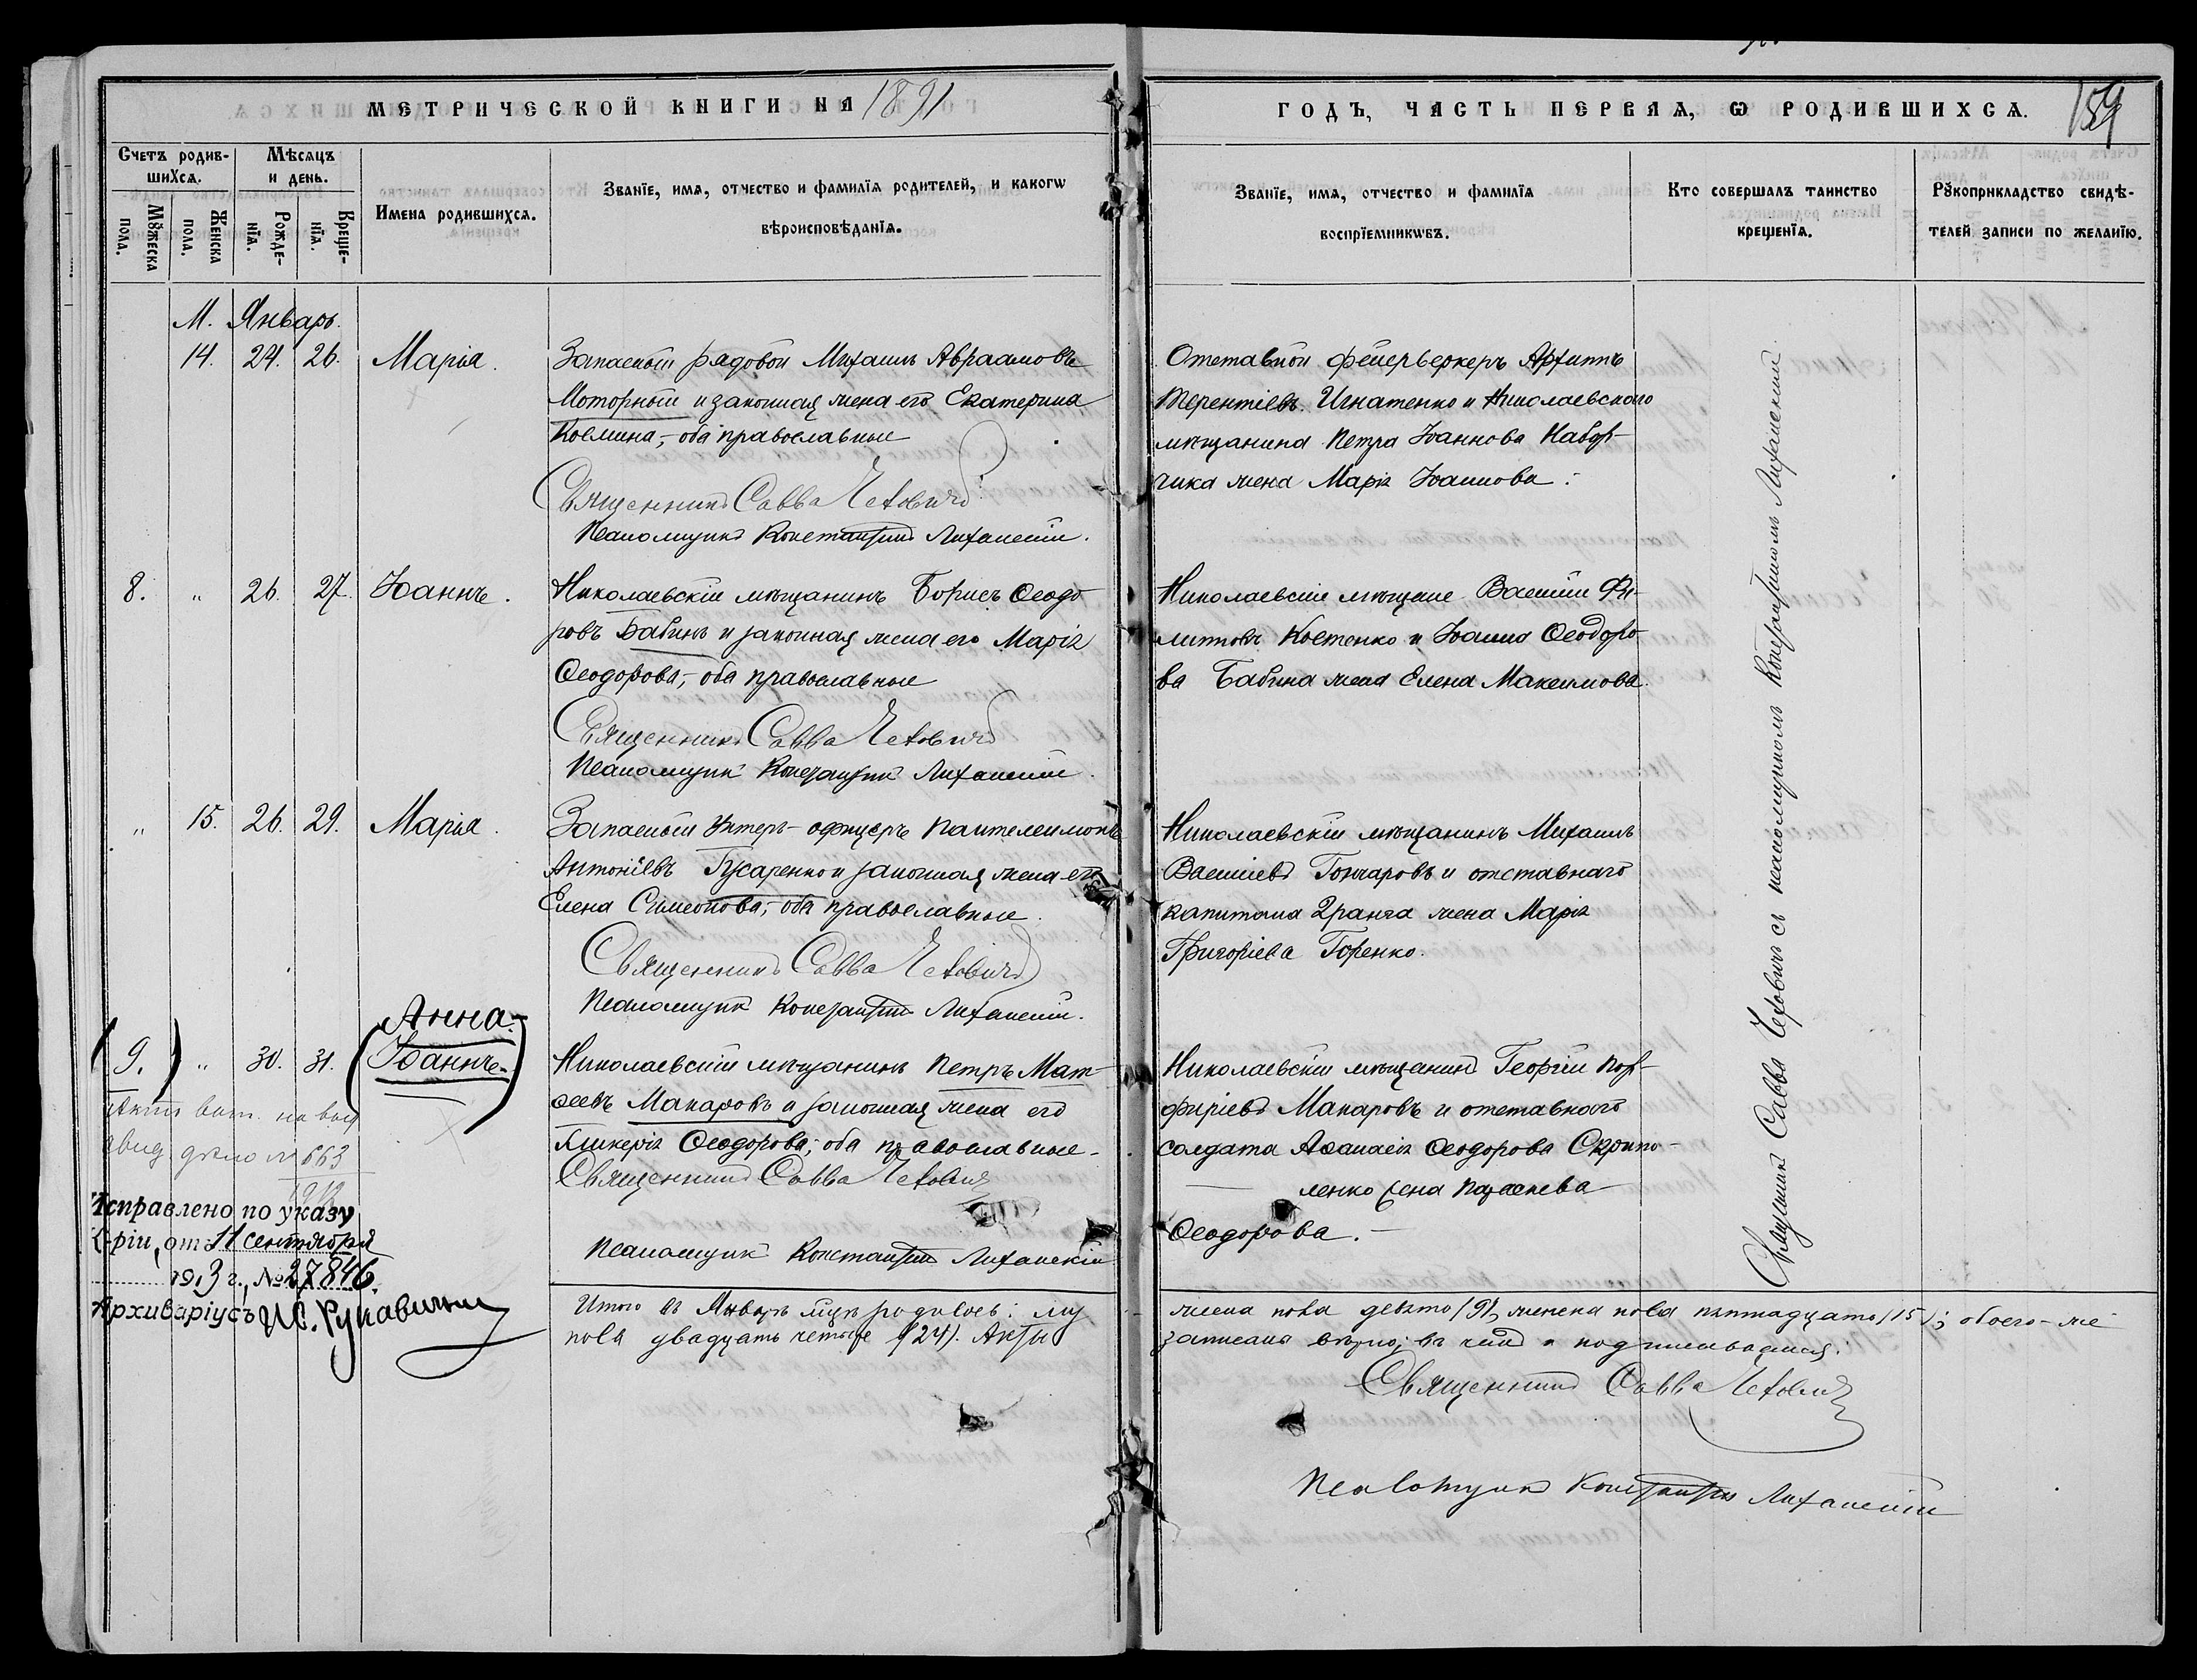 МЕТРИЧЕСКОЙ КНИГИ НА 1891
ГОДЪ, ЧАСТЬ ПЕРВАЯ, Ѡ РОДИВШИХСѦ.
Счетъ родив-
шиХся.
Мѣсяцъ
и день.
Мꙋжеска
пола.
Женска
пола.
Рожде-
нїя.
Креще-
нїя.
Имена родившихся.
Званїе, имя, отчество и фамилїя родителей, и какогѡ
вѣроисповѣданїя.
Званїе, имя, отчество и фамилїя
воспрїемникѡвъ.
Кто совершалъ таинство
крещенїя.
Рꙋкоприкладство свидѣ-
телей записи по желанїю.
М. Январь.
14. 24. 26. Марія.
Запасный рядовой Михаилъ Авраамовъ
Моторный и законная жена его Екатерина
Космина,- оба православные
Священникъ Савва Чехович
Псаломщикъ Константинъ Лиханскій.
Отставной фейерверкеръ Архиппъ
Терентіевъ Игнатенко и Николаевского
мѣщанина Петра Іоаннова Набор-
чика жена Марія Іоаннова.
8. " 26. 27. Іоаннъ.
Николаевскій мѣщанинъ Борисъ Ѳеодо
ровъ Бабинъ и законная жена его Марія
Ѳеодорова,- оба православные
Священникъ Савва Чеховичъ
Псаломщикъ Константинъ Лиханскій.
Николаевскіе мѣщане Василій Фи-
липповъ Костенко и Іоанна Ѳеодоро
ва Бабина жена Елена Максимова.
" 15. 26. 29. Марія.
Запасный Унтеръ-офицеръ Пантелеимонъ
Антоніевъ Гусаренко и законная жена его
Елена Симеонова,- оба православные.
Священникъ Савва Чеховичъ
Псаломщикъ Константинъ Лиханскій.
Николаевскій мѣщанинъ Михаилъ
Василіевъ Гончаровъ и отставнаго
капитана 2 ранга жена Марія
Григоріева Горенко.
Анна.
(9.) " 30. 31. (Іоаннъ.)
Николаевскій мѣщанинъ Петръ Мат-
ѳеевъ Макаровъ и законная жена его
Гликерія Ѳеодорова; оба православные.
Священникъ Савва Чехович
Псаломщикъ Константинъ Лиханскій
Николаевскій мѣщанинъ Георгій Пор-
фиріевъ Макаровъ и отставного
солдата Аѳанасія Ѳеодорова Скрипо-
ленко жена Параскева
Ѳеодорова.-
дѣло № 663
Исправлено по указу
от 11 сентября
1913 г., № 27846.
Архиваріусъ И.С. Рукавичин
Священникъ Савва Чеховичъ съ псаломщикомъ Константиномъ Лиханскимъ
Итого въ Январѣ мцѣ родилось: муж
пола двадцать четыре (24). Акты
женска пола девять (9), женска пола пятнадцать (15); обоего-же
записаны вѣрно; въ чемъ и подписываемся:
Священникъ Савва Чехович
Псаломщикъ Константинъ Лиханскій